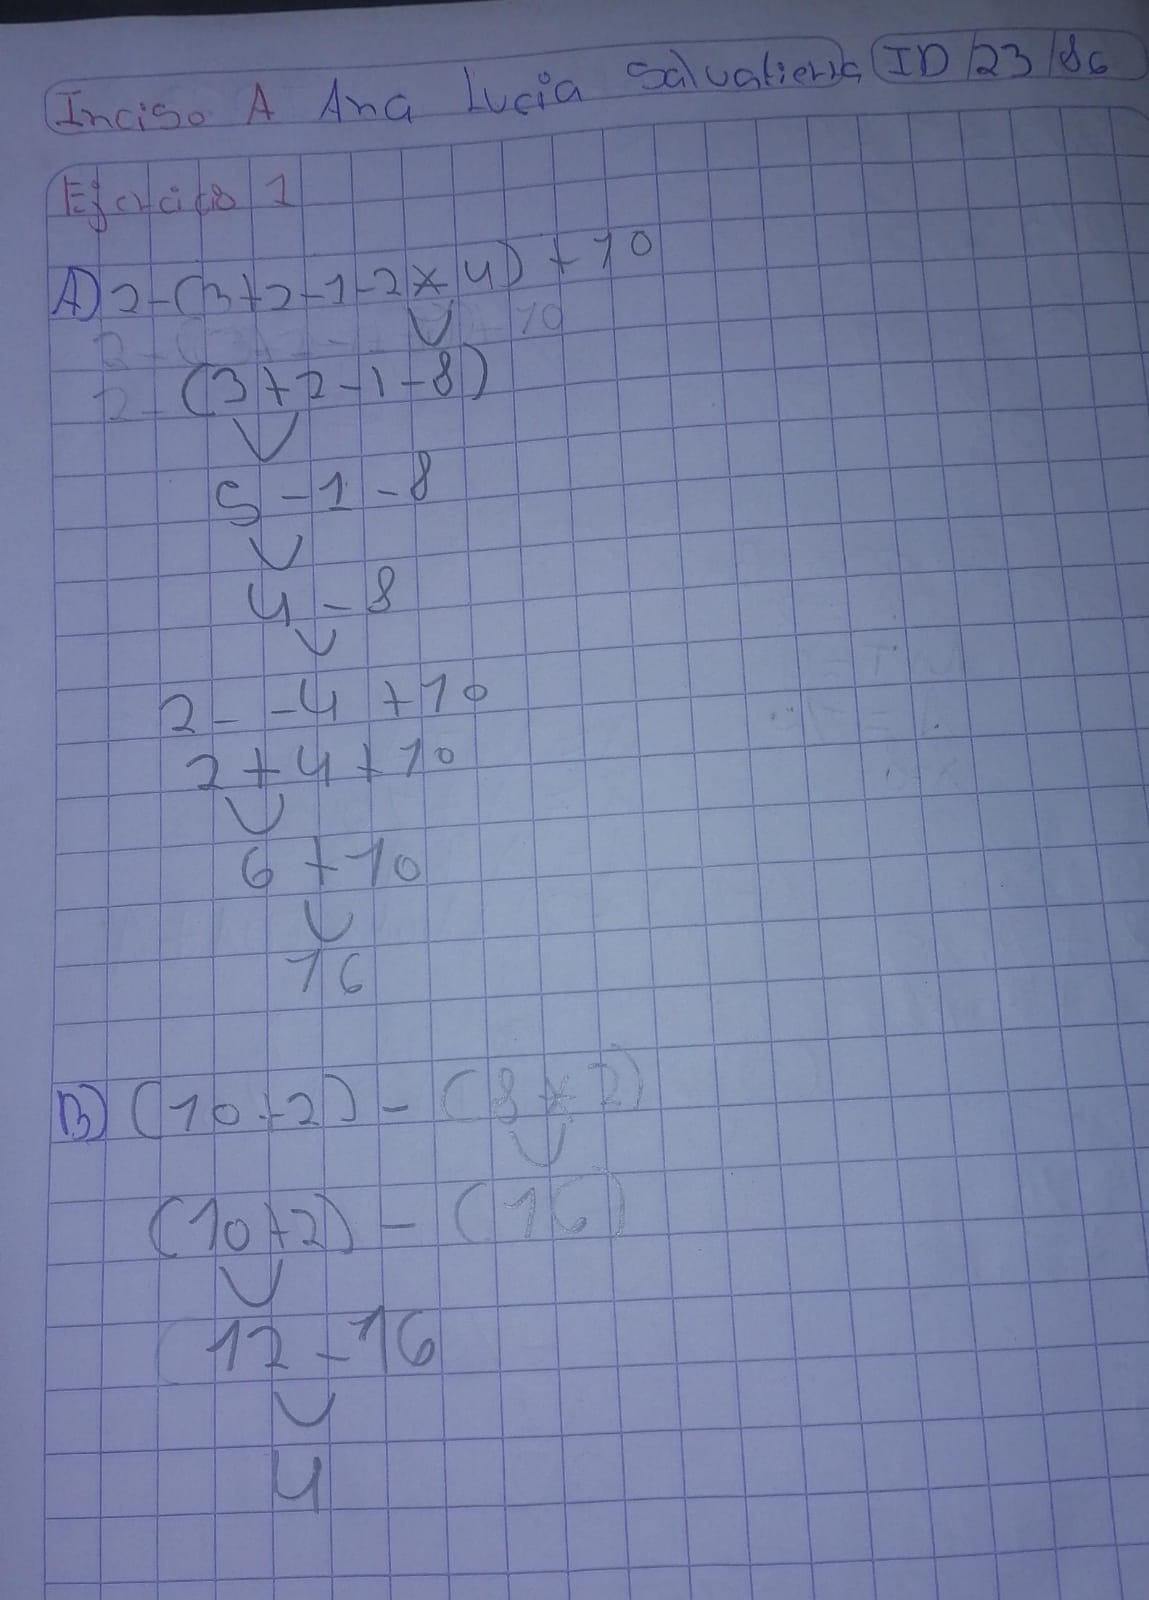 Inciso A Ana Lucia Salvatierra ID 23186
Ejercicio 1
A) 2-(3+2-1-2×4)+10
2-(3+2-1-8)
5-1-8
4-8
2--4+10
2+4+10
6+10
16
B) (10+2)-(8×2)
(10+2)-(16)
12-16
4